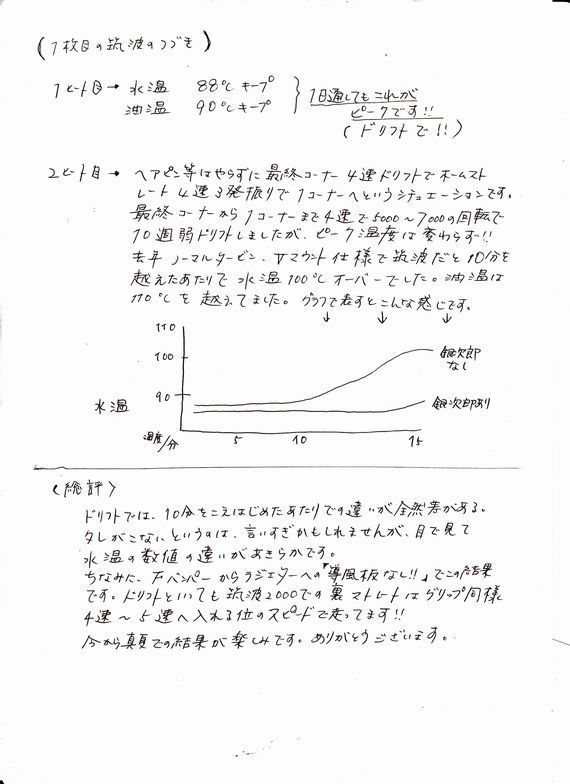 (1枚目の筑波のつづき)
1ヒート目→ 水温 88℃キープ
油温 90℃キープ
1日通してもこれが
ピークです!!
(ドリフトで!!)
2ヒート目→ ヘアピン等はやらずに最終コーナー4速ドリフトでホームスト
レート4速3発振りで1コーナーへというシチュエーションです。
最終コーナーから1コーナーまで4速で5000～7000の回転で
10週弱ドリフトしましたが、ピーク温度は変わらず!!
去年ノーマルタービン、Vマウント仕様で筑波だと10分を
越えたあたりで水温100℃オーバーでした。油温は
110℃を越えてました。グラフで表すとこんな感じです。
↓ ↓ ↓
110
100
90
水温
温度/分
5 10 15
銀次郎
なし
銀次郎あり
〈総評〉
ドリフトでは、10分をこえはじめたあたりでの違いが全然差がある。
タレがこない、というのは、言いすぎかもしれませんが、目で見て
水温の数値の違いがあきらかです。
ちなみに、Fバンパーからラジエターへの「導風板なし!!」でこの結果
です。ドリフトといっても筑波2000での裏ストレートはグリップ同様
4速～5速へ入れる位のスピードで走ってます!!
今から真夏での結果が楽しみです。ありがとうございます。